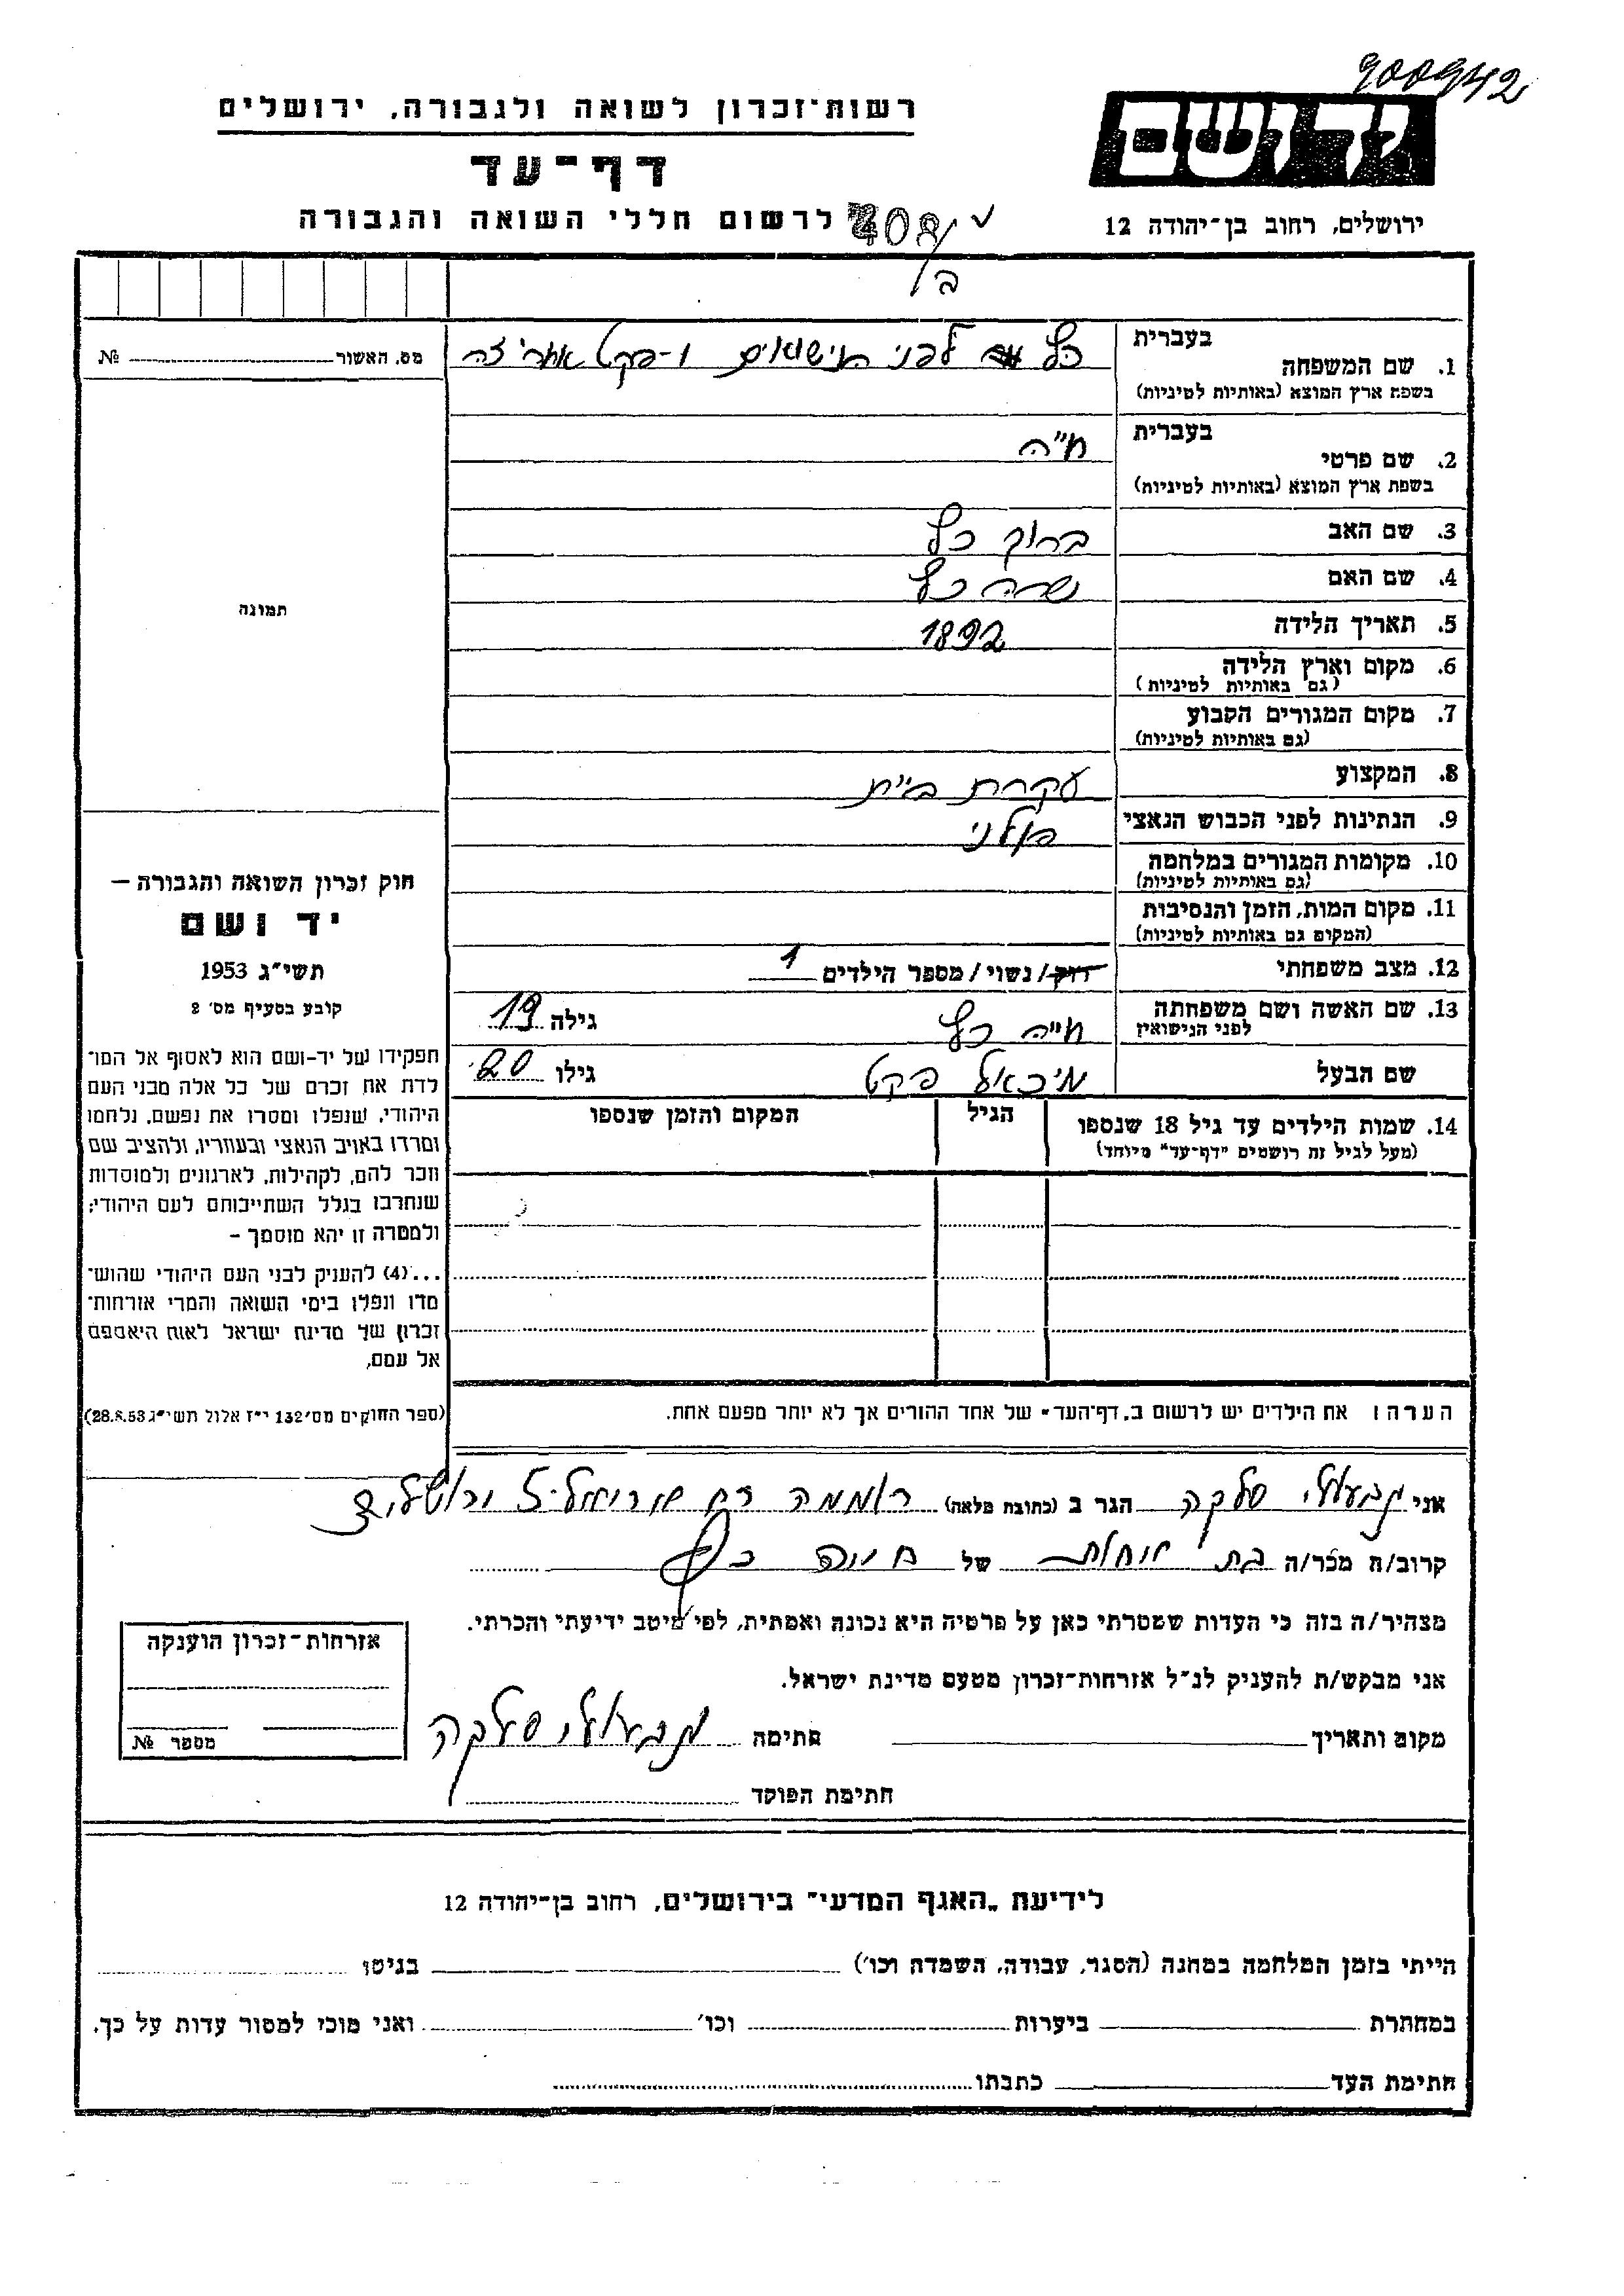 900942
רשות־זכרון לשואה ולגבורה, ירושלים
יד ושם
דף־עד
לרשום חללי השואה והגבורה
408
ירושלים, רחוב בן־יהודה 12
בעברית
1. שם המשפחה
כץ לפני הנישואים ו-פקט אחרי זה
בשפת ארץ המוצא (באותיות לטיניות)
מס. האשור № 
בעברית
2. שם פרטי
חיה
בשפת ארץ המוצא (באותיות לטיניות)
3. שם האב ברוך כץ
4. שם האם שרה כץ
תמונה
5. תאריך הלידה 1892
6. מקום וארץ הלידה
(גם באותיות לטיניות)
7. מקום המגורים הקבוע
(גם באותיות לטיניות)
8. המקצוע עקרת בית
9. הנתינות לפני הכבוש הנאצי פולני
10. מקומות המגורים במלחמה
(גם באותיות לטיניות)
11. מקום המות, הזמן והנסיבות
(המקום גם באותיות לטיניות)
12. מצב משפחתי רוק/נשוי/מספר הילדים 1
13. שם האשה ושם משפחתה
לפני הנישואין
חיה כץ גילה 19
שם הבעל מיכאל פקט גילו 20
14. שמות הילדים עד גיל 18 שנספו
(מעל לגיל זה רושמים "דף־עד" מיוחד)
הגיל
המקום והזמן שנספו
חוק זכרון השואה והגבורה –
יד ושם
תשי"ג 1953
קובע בסעיף מס' 2
תפקידו של יד-ושם הוא לאסוף אל המו־
לדת את זכרם של כל אלה מבני העם
היהודי, שנפלו ומסרו את נפשם, נלחמו
ומרדו באויב הנאצי ובעוזריו, ולהציב שם
וזכר להם, לקהילות, לארגונים ולמוסדות
שנחרבו בגלל השתייכותם לעם היהודי;
ולמטרה זו יהא מוסמך –
...(4) להעניק לבני העם היהודי שהוש־
מדו ונפלו בימי השואה והמרי אזרחות־
זכרון של מדינת ישראל לאות היאספם
אל עמם.
(ספר החוקים מס' 132 י"ז אלול תשי"ג 28.8.53)
הערה: את הילדים יש לרשום ב"דף־העד" של אחד ההורים אך לא יותר מפעם אחת.
אני סלקה הגר ב (כתובת מלאה) רוממה
קרוב/ה מכר/ה בת של חיה כץ
מצהיר/ה בזה כי העדות שמסרתי כאן על פרטיה היא נכונה ואמתית, לפי מיטב ידיעתי והכרתי.
אני מבקש/ת להעניק לנ"ל אזרחות־זכרון מטעם מדינת ישראל.
מקום ותאריך חתימה סלקה
חתימת הפוקד
אזרחות־זכרון הוענקה
מספר №
לידיעת "האגף המדעי" בירושלים, רחוב בן־יהודה 12
הייתי בזמן המלחמה במחנה (הסגר, עבודה, השמדה וכו') בגיטו
במחתרת ביערות וכו' ואני מוכן למסור עדות על כך.
חתימת העד כתבתו